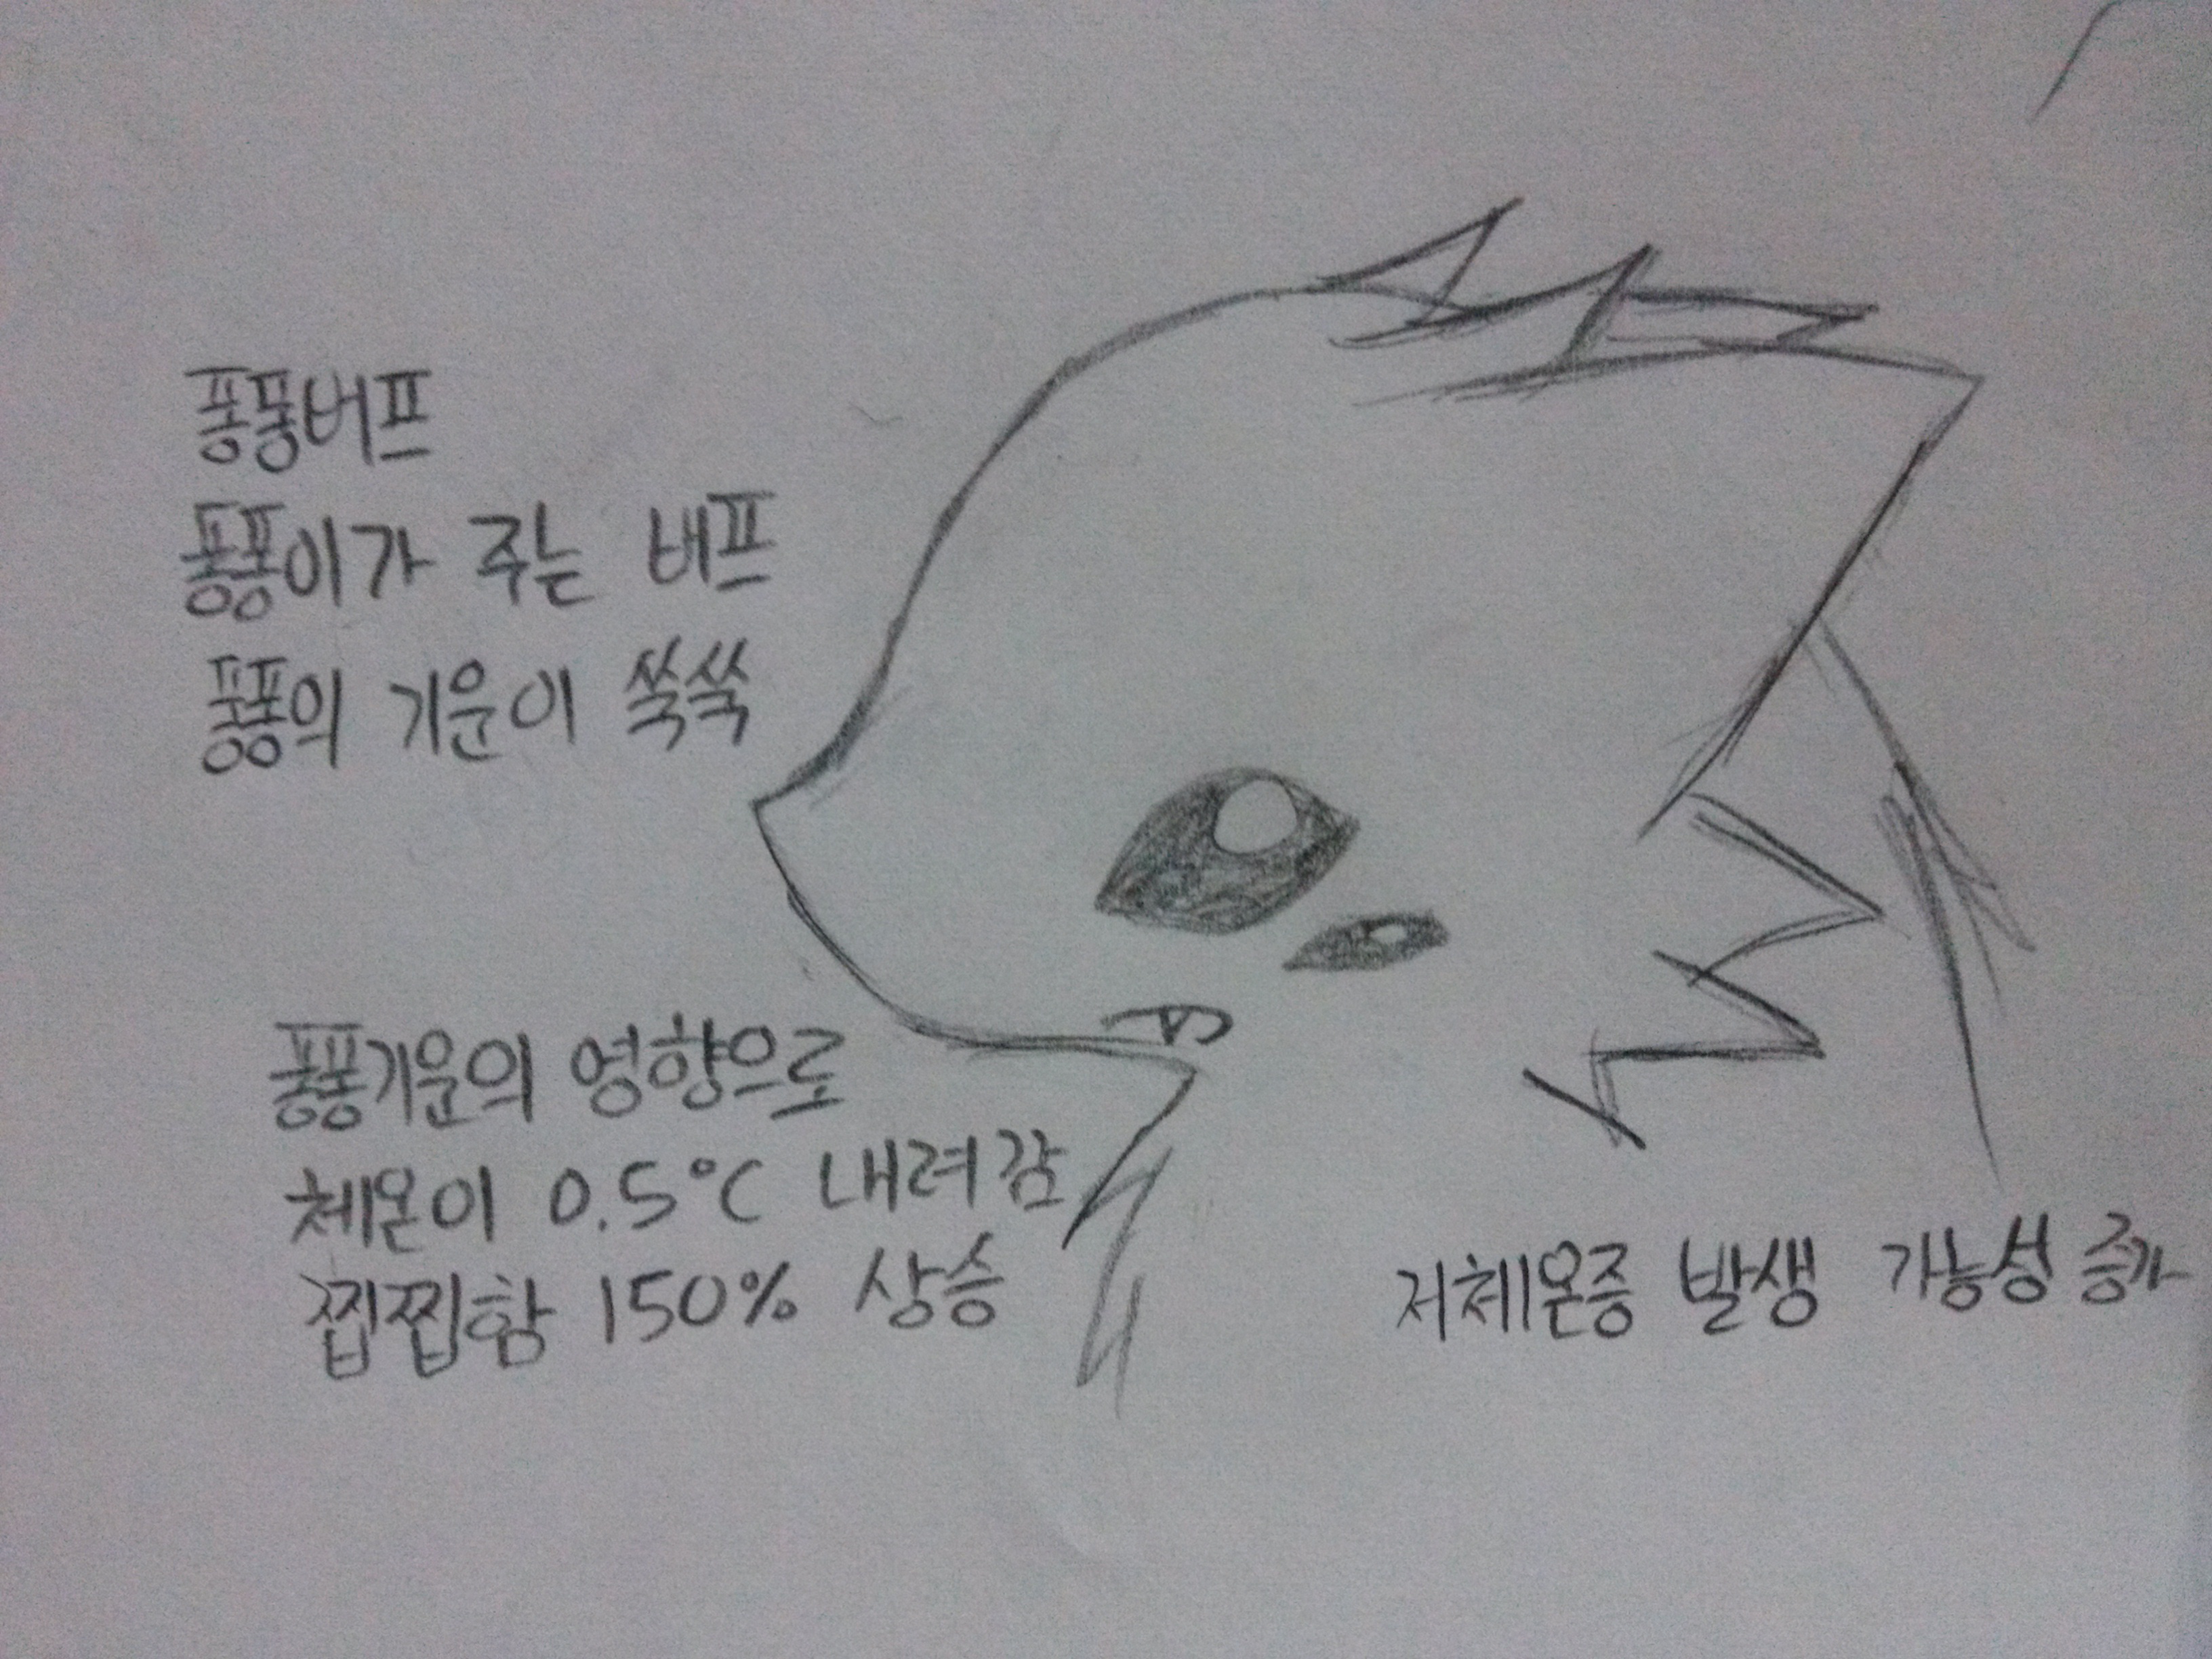 퐁퐁버프
퐁퐁이가 주는 버프
퐁퐁의 기운이 쑥쑥
퐁퐁기운의 영향으로
체온이 0.5℃ 내려감
찝찝함 150% 상승
저체온증 발생 가능성 증가